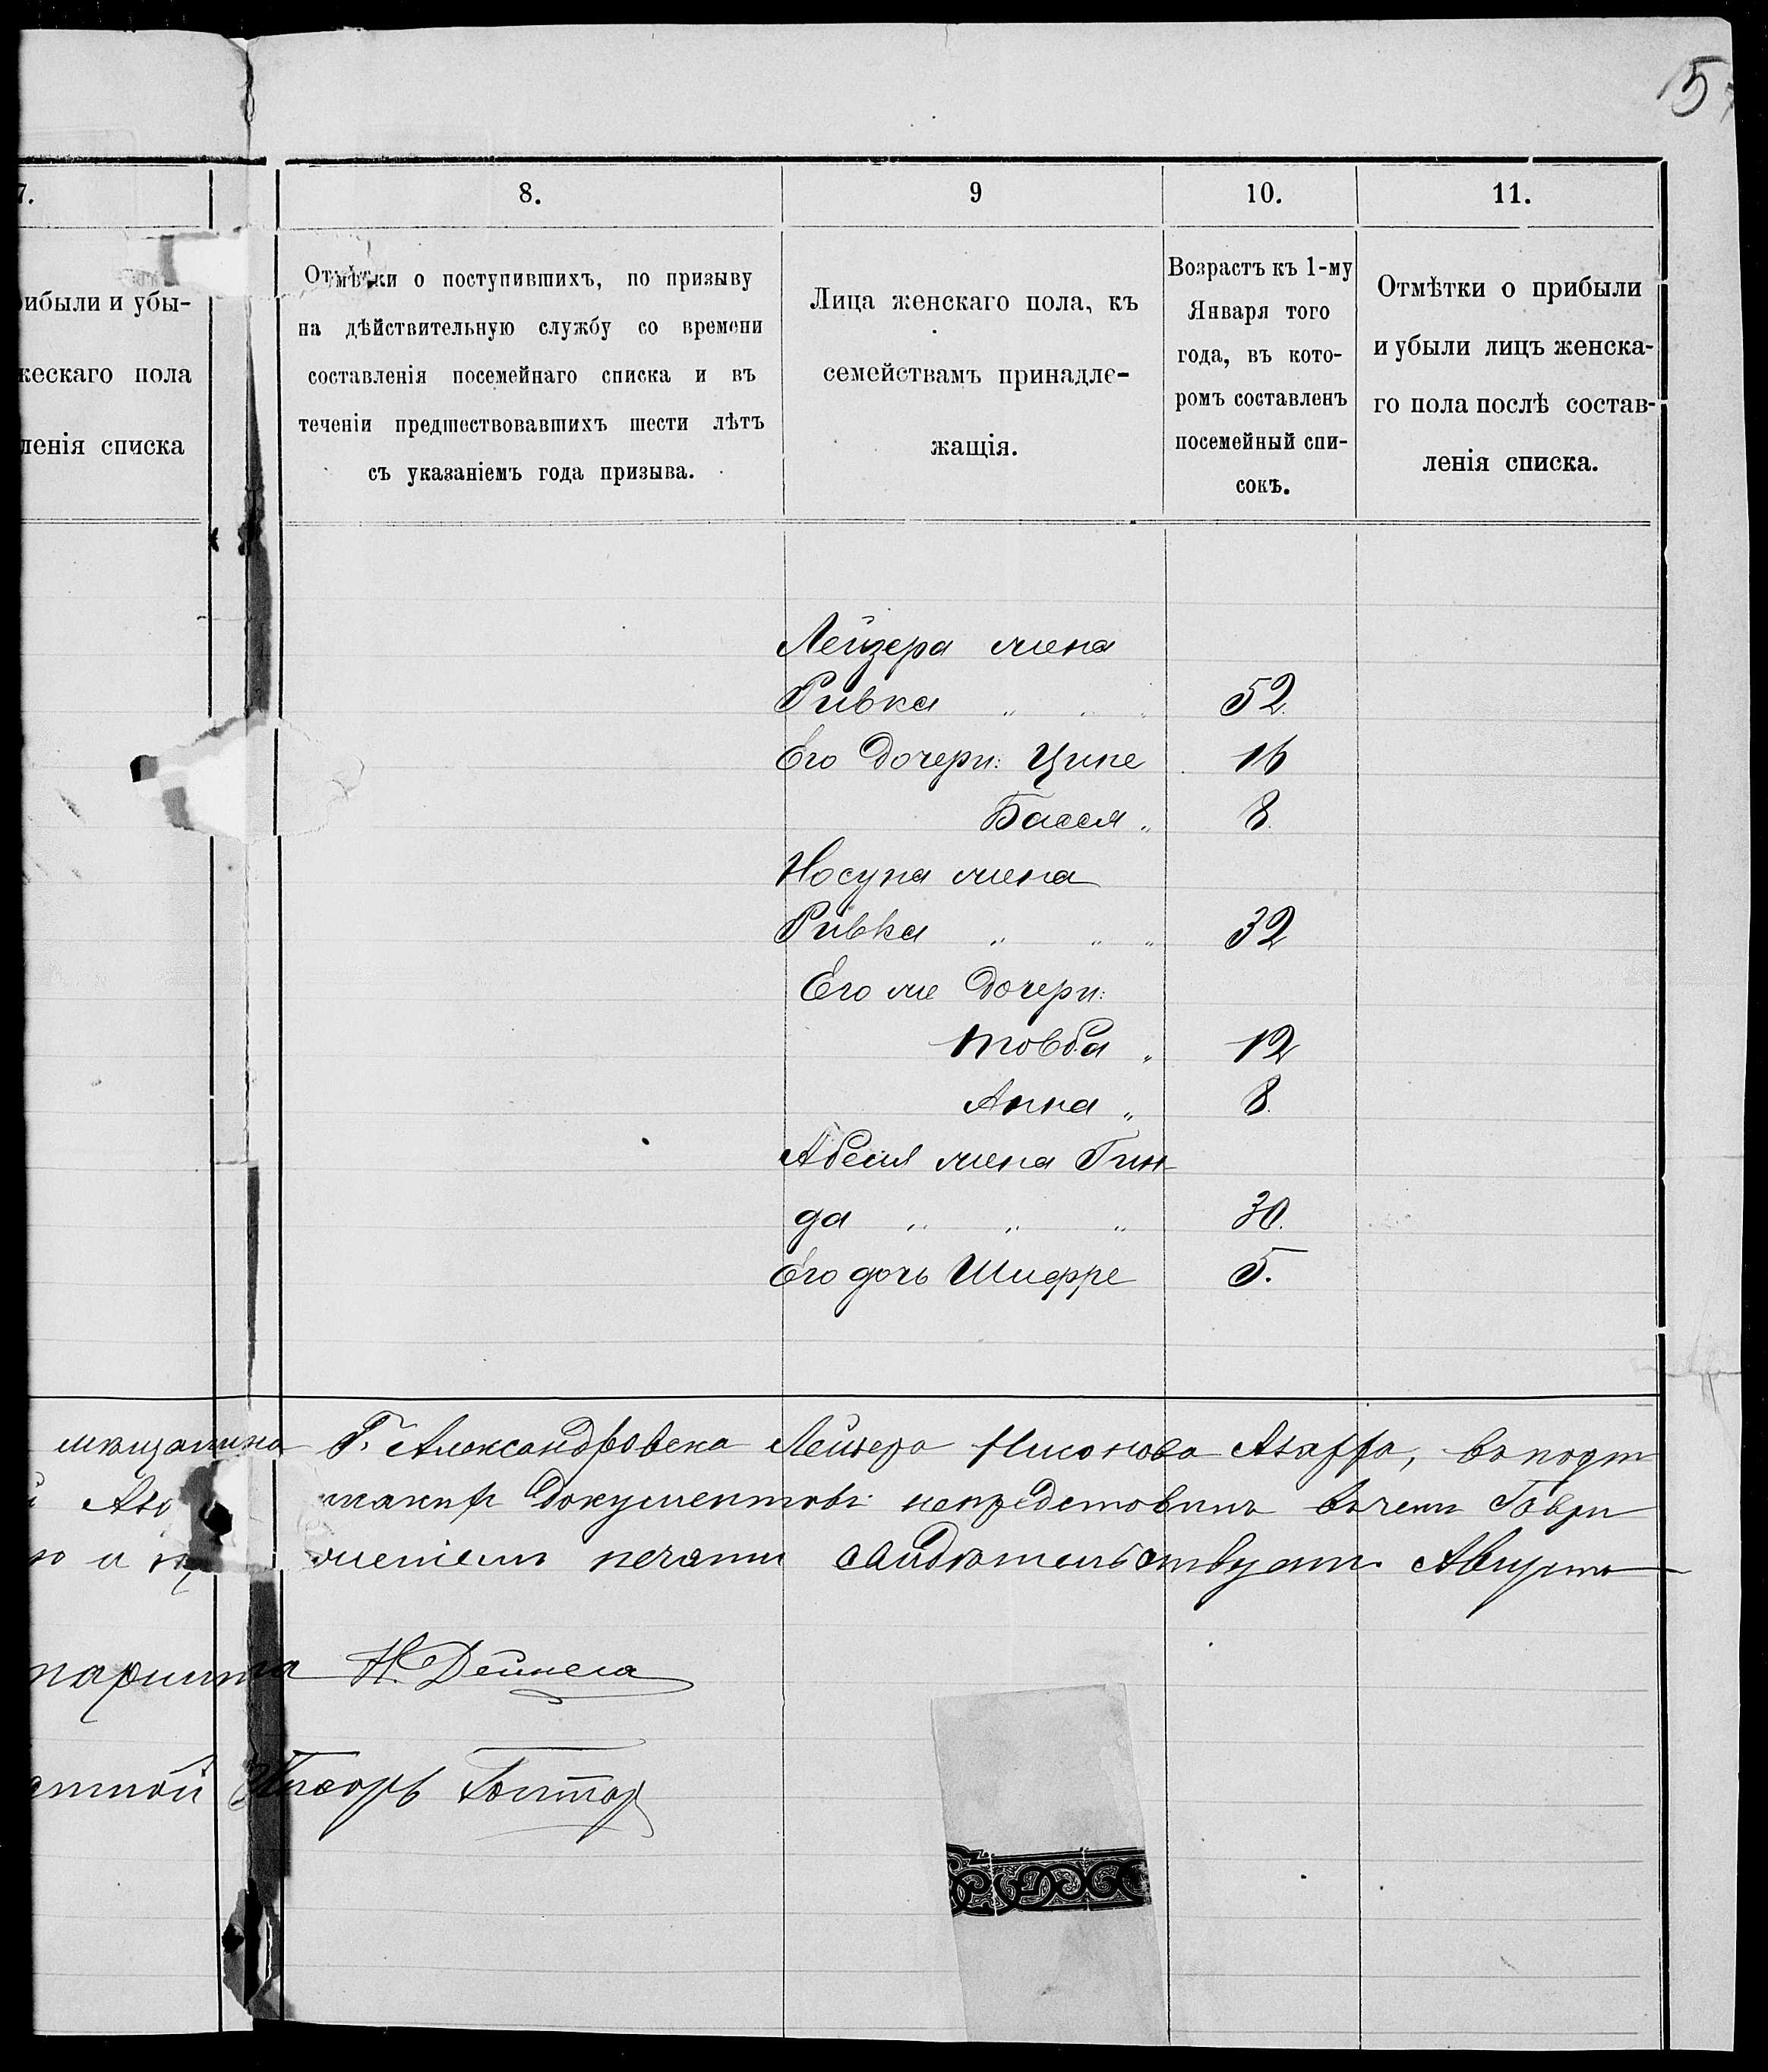 5
7.
8.
9
10.
11.
рибыли и убы-
жескаго пола
ленія списка
Отмѣтки о поступившихъ, по призыву
на дѣйствительную службу со времени
составленія посемейнаго списка и въ
теченіи предшествовавшихъ шести лѣтъ
съ указаніемъ года призыва.
Лица женскаго пола, къ
семействамъ принадле-
жащія.
Возрастъ къ 1-му
Января того
года, въ кото-
ромъ составленъ
посемейный спи-
сокъ.
Отмѣтки о прибыли
и убыли лицъ женска-
го пола послѣ состав-
ленія списка.
Лейзера жена
Ривка " " " 52
Его дочери: Ципе 16
Бася " 8.
Носупа жена
Ривка " " " 32
Его же дочери:
Товба " 12
Анна " 8.
Абеля жена Гин-
да " " " 30.
Его дочь Шифре 5.
мѣщанина Г. Александровска Лейзера Нисонова
документовъ непредставилъ въ чемъ
печати свидѣтельствуетъ Августа
Н. Дейнега